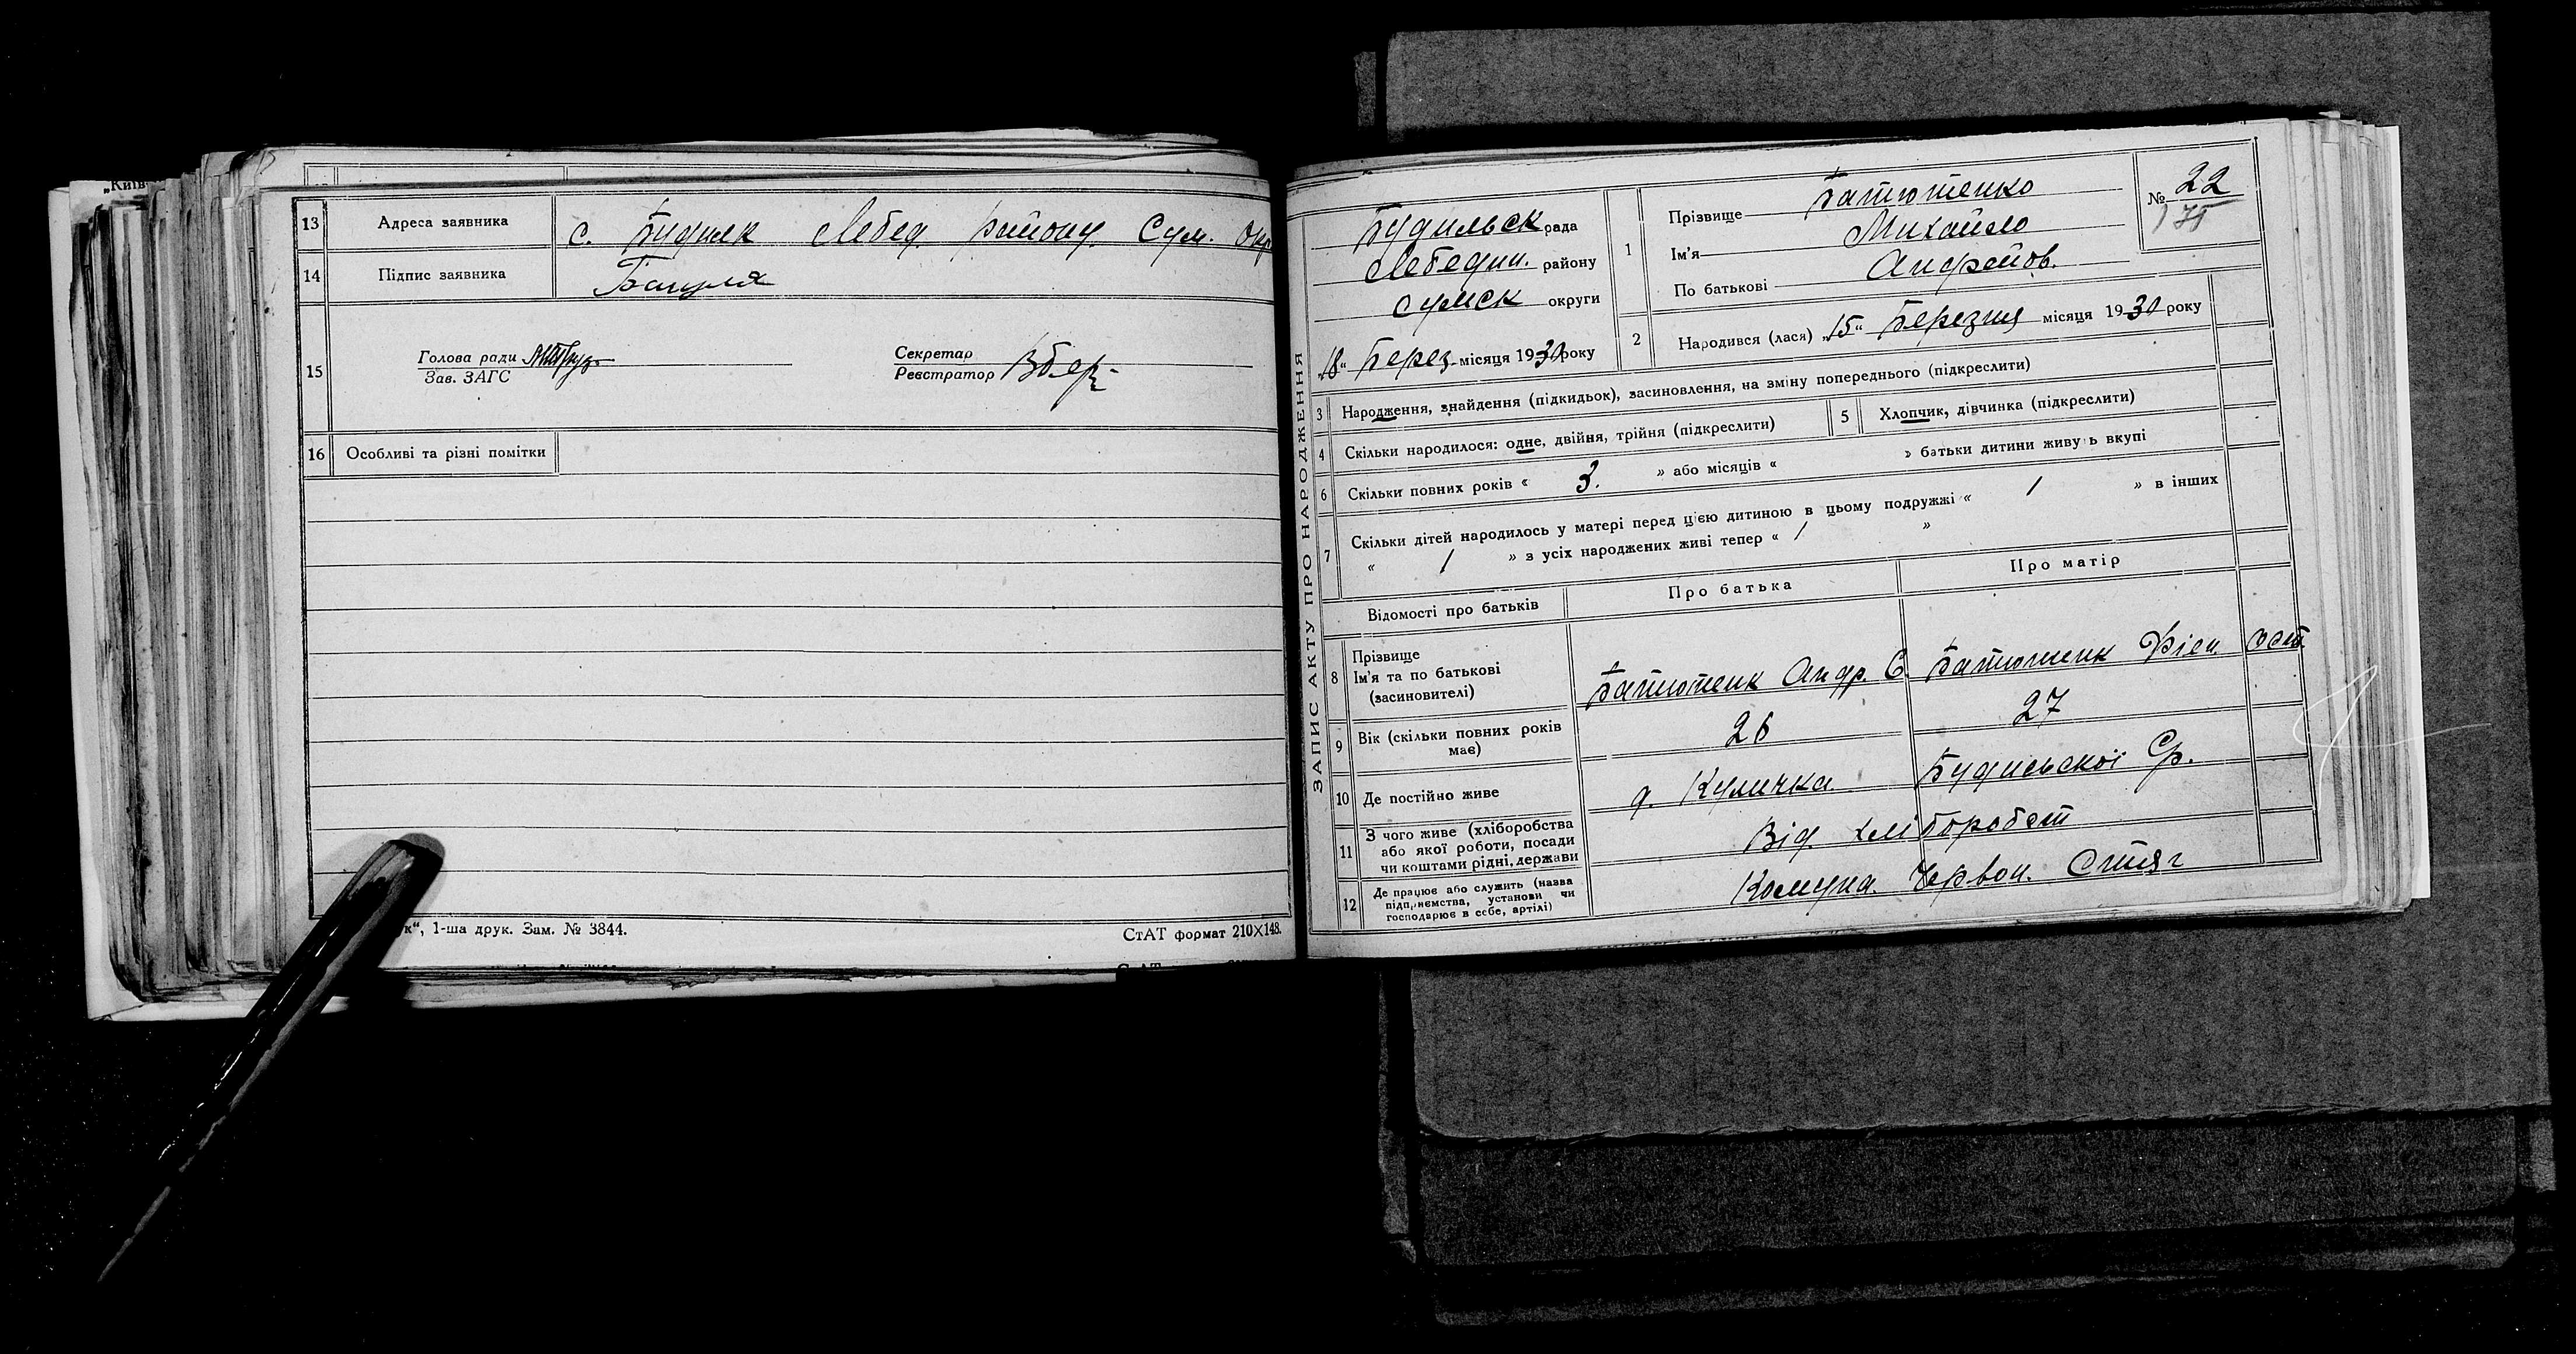 „Київ
13 Адреса заявника с. Будилк Лебед. району Сум. окр
14 Підпис заявника
15 Голова ради
Зав. ЗАГС
Секретар
Реєстратор
16 Особливі та різні помітки
к“, 1-ша друк. Зам. № 3844.
СтАТ формат 210×148.
ЗАПИС АКТУ ПРО НАРОДЖЕННЯ
Будильськ рада
Лебедин. району
Сумск округи
„18“ Берез. місяця 1930 року
1 Прізвище Батютенко
Ім'я Михайло
По батькові Андрейов.
№ 22
175
2 Народився (лася) „15“ Березня місяця 1930 року
3 Народження, знайдення (підкидьок), засиновлення, на зміну попереднього (підкреслити)
4 Скільки народилося: одне, двійня, трійня (підкреслити)
5 Хлопчик, дівчинка (підкреслити)
6 Скільки повних років « 3. » або місяців « » батьки дитини живуть вкупі
7 Скільки дітей народилось у матері перед цією дитиною в цьому подружжі « 1 » в інших
« 1 » з усіх народжених живі тепер « 1 »
Відомості про батьків Про батька Про матір
8 Прізвище
Ім'я та по батькові
(засиновителі)
Батютенк Андр. С. Батютенк
9 Вік (скільки повних років
має)
26 27
10 Де постійно живе д. Куличка Будильської Ср.
11 З чого живе (хліборобства
або якої роботи, посади
чи коштами рідні, держави
Від хлібороб
12 Де працює або служить (назва
підприємства, установи чи
господарює в себе, артілі)
Комуна. Червон. Стяг